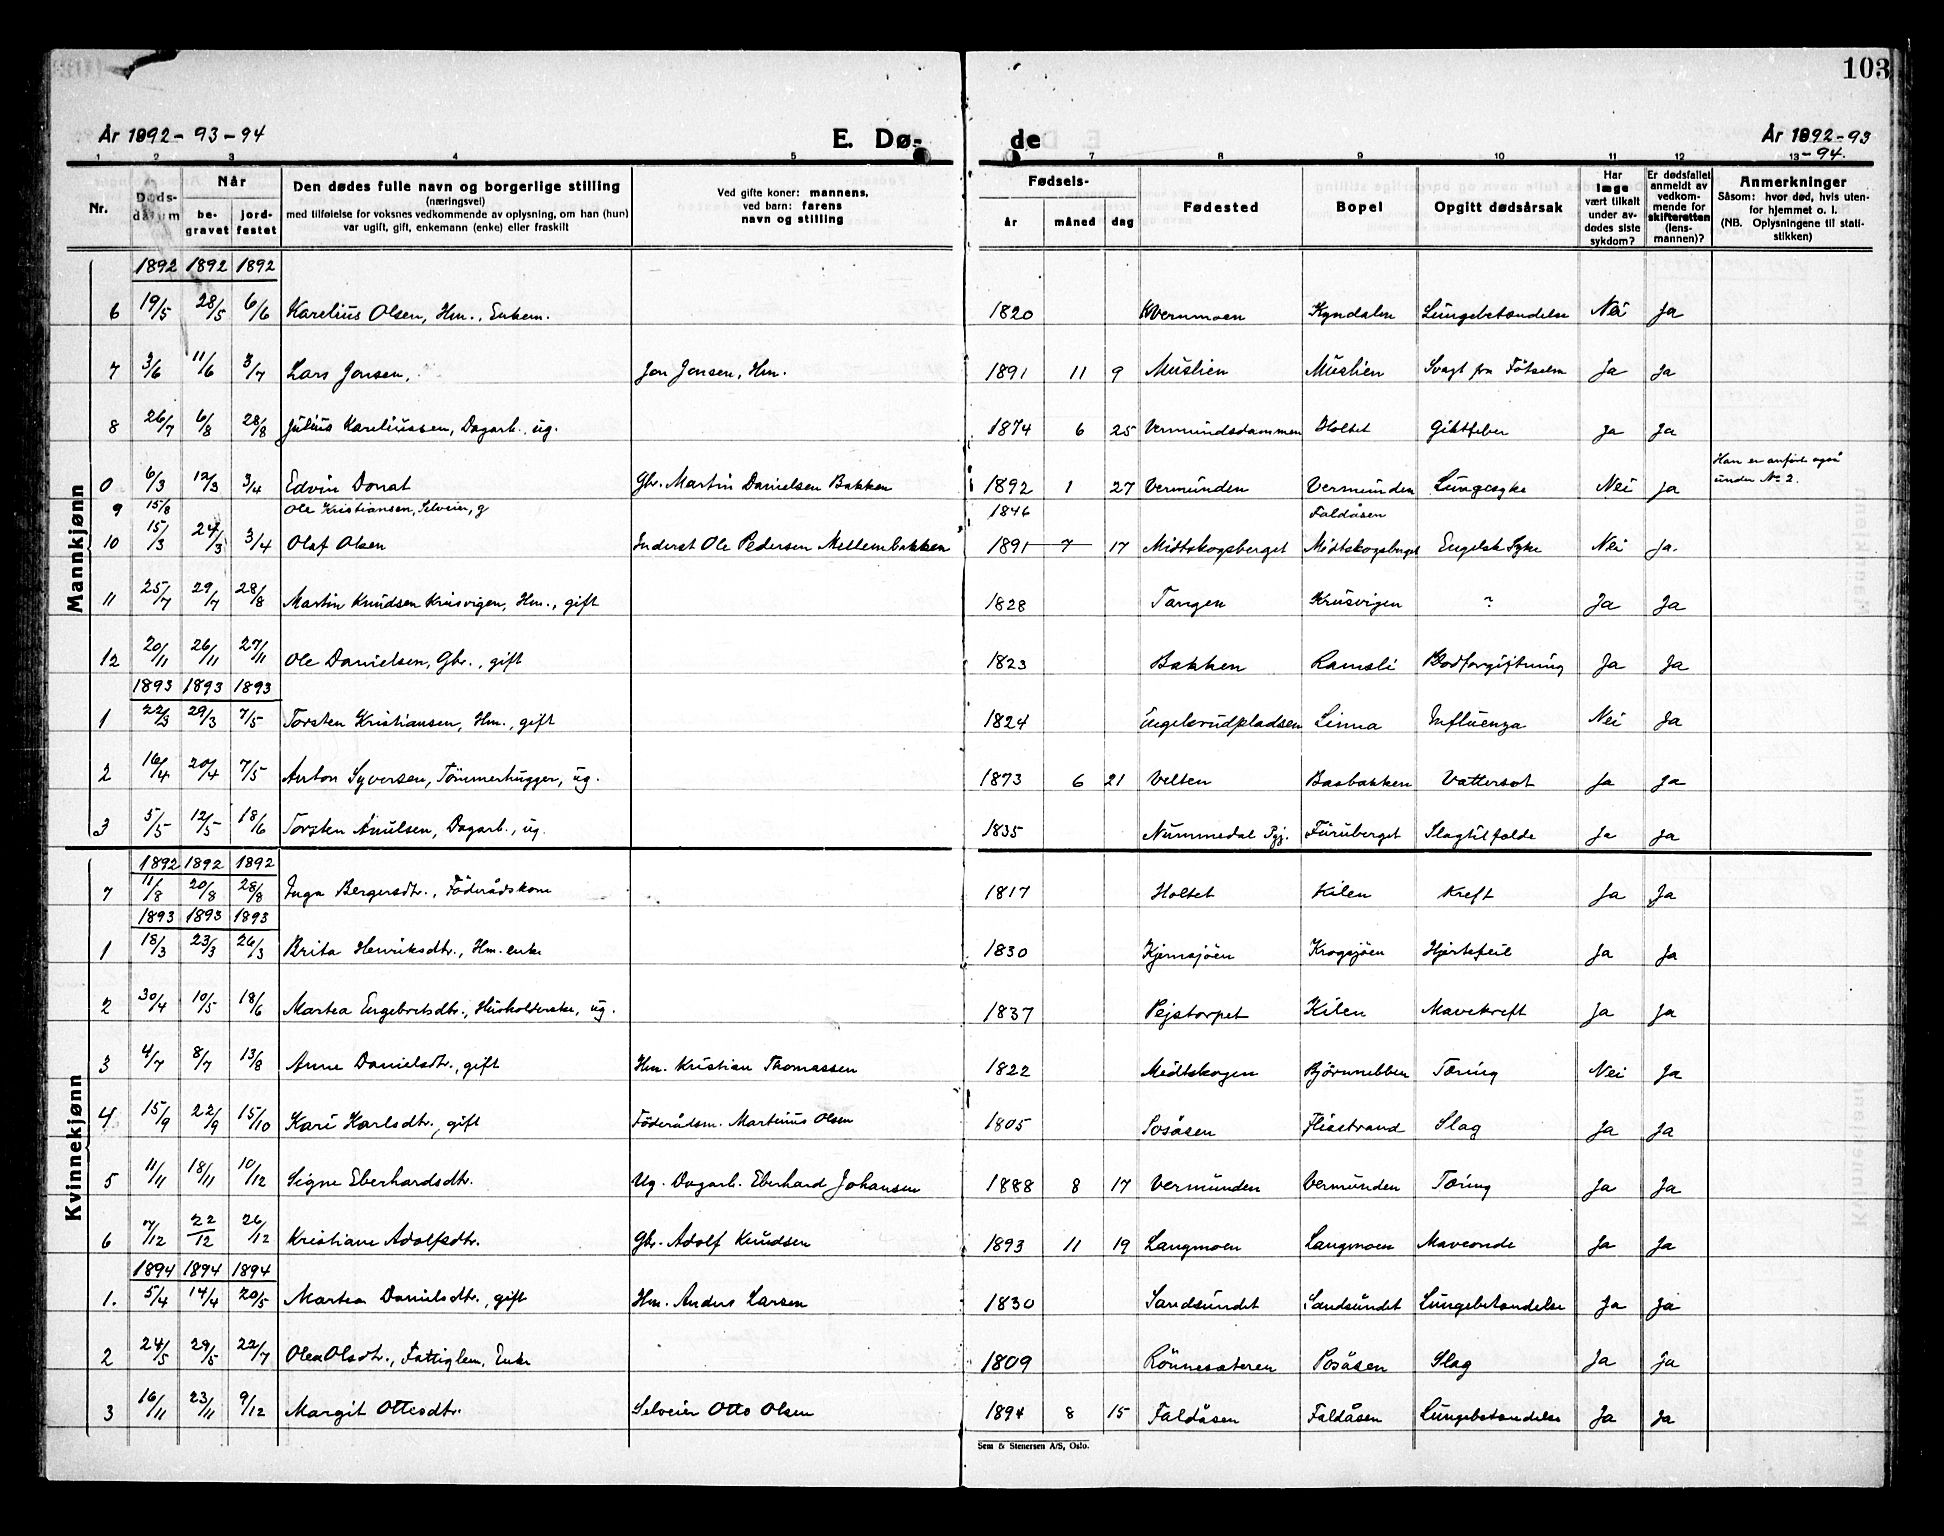 103
År 1892-93-94
E. Dø-
de
År 1892-93
-94.
1 2 3 4 5 7 8 9 10 11 12 13
Nr.
Døds-
datum
Når
be-
gravet
jord-
festet
Den dødes fulle navn og borgerlige stilling
(næringsvei)
med tilføielse for voksnes vedkommende av oplysning, om han (hun)
var ugift, gift, enkemann (enke) eller fraskilt
Ved gifte koner: mannens,
ved barn: farens
navn og stilling
Fødsels-
år
måned
dag
Fødested
Bopel
Opgitt dødsårsak
Har
læge
vært tilkalt
under av-
dødes siste
sykdom?
Er dødsfallet
anmeldt av
vedkom-
mende for
skifteretten
(lens-
mannen)?
Anmerkninger
Såsom: hvor død, hvis uten-
for hjemmet o. l.
(NB. Oplysningene til stati-
stikken)
Mannkjønn
1892 1892 1892
6 19/5 28/5 6/6 Karelius Olsen, Hm., Enkem. 1820 Kvernmoen Kyndalen Lungebetændelse Nei Ja
7 3/6 11/6 3/7 Lars Jonsen, Jon Jonsen, Hm. 1891 11 9 Muslien Muslien Svagt fra Fötselen Ja Ja
8 26/7 6/8 28/8 Julius Kareliussen, Dagarb., ug. 1874 6 25 Vermundsdammen Holtet Giktfeber Ja Ja
Han er anført også
0 6/3 12/3 3/4 Edvin Donat Gbr. Martin Danielsen Bakken 1892 1 27 Vermunden Vermunden Lungesyke Nei Ja under No 2.
9 15/8 Ole Kristiansen, Selveier, g 1846 Faldåsen
10 15/3 24/3 3/4 Olaf Olsen Inderst Ole Pedersen Mellembakken 1891 7 17 Midtskogsberget Midtskogsberget Engelsk Syke Nei Ja.
11 25/7 29/7 28/8 Martin Knudsen Krusvigen, Hm., gift 1828 Tangen Krusvigen ? Ja Ja
12 20/11 26/11 27/11 Ole Danielsen, Gbr., gift 1823 Bakken Ramsli Blodforgiftning Ja Ja
1893 1893 1893
1 22/3 29/3 7/5 Torsten Kristiansen, Hm., gift 1824 Engelsrudpladsen Linna Influenza Nei Ja
2 16/4 20/4 7/5 Anton Syversen, Tömmerhugger, ug. 1873 6 21 Velten Basbakken Vattersot Ja Ja
3 5/5 12/5 18/6 Torsten Amilsen, Dagarb., ug. 1835 Nummedal Pgj. Furuberget Slagtilfælde Ja Ja
Kvinnekjønn
1892 1892 1892
7 11/8 20/8 28/8 Inga Bergersdtr., Föderådskone 1817 Holtet Kilen Kreft Ja Ja
1893 1893 1893
1 18/3 23/3 26/3 Brita Henriksdtr., Hm. enke 1830 Kjernsjöen Krogsjöen Hjertefeil Ja Ja
2 30/4 10/5 18/6 Martea Engebretsdtr., Husholderske, ug. 1837 Pejstorpet Kilen Mavekreft Ja Ja
3 4/7 8/7 13/8 Anne Danielsdtr., gift Hm. Kristian Thomassen 1822 Midtskogen Björnnebben Tæring Nei Ja
4 15/9 22/9 15/10 Kari Karlsdtr., gift Föderådsm. Martinus Olsen 1805 Posåsen Flisstrand Slag Ja Ja
5 11/11 18/11 10/12 Signe Eberhardsdtr. Ug. Dagarb. Eberhard Johansen 1888 8 17 Vermunden Vermunden Tæring Ja Ja
6 7/12 22/12 26/12 Kristiane Adolfsdtr. Gbr. Adolf Knudsen 1893 11 19 Langmoen Langmoen Maveonde Ja Ja
1894 1894 1894
1. 5/4 14/4 20/5 Martea Danielsdtr., gift Hm. Anders Larsen 1830 Sandsundet Sandsundet Lungebetændelse Ja Ja
2 24/5 29/5 22/7 Olea Olsdtr., Fattiglem, Enke 1809 Rönnesæteren Posåsen Slag Ja Ja
3 16/11 23/11 9/12 Margit Ottesdtr. Selveier Otto Olsen 1894 8 15 Faldåsen Faldåsen Lungebetændelse Ja Ja
Sem & Stenersen A/S, Oslo.